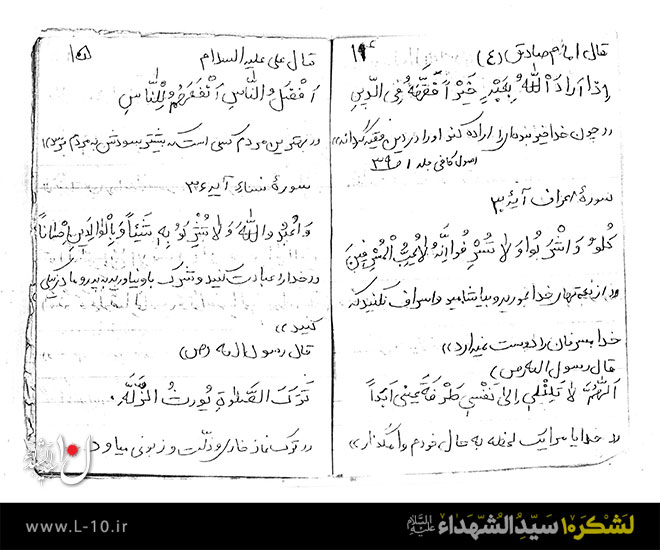 قال امام صادق (ع)
۱۴
اِذا اَرادَ اللّٰهُ بِعَبْدٍ خَیْرًا فَقَّهَهُ فِی الدّینِ
«چون خدا خیر بنده‌ای را اراده کند او را در دین فقیه گرداند»
اصول کافی جلد ۱ ص ۳۹
سورهٔ عمران آیهٔ ۳۰
کُلوُ وَاشْرَبُوا وَلا تُسْرِفُوا اَنَّهُ لا یُحِبُّ الْمُسْرِفینَ
«از نعمتهای خدا بخورید و بیاشامید و اسراف نکنید که
خدا مسرفان را دوست نمیدارد»
قال رسول الله (ص)
اَللّهُمَ لا تَکِلْنی اِلی نَفْسی طَرْفَةَ عَینی اَبَداً
«خدایا مرا یک لحظه به حال خودم وا مگذار»
۱۵
قال علی علیه السلام
اَفْضَلُ النّاسِ اَنْفَعَهُمْ لِلنّاسِ
«بهترین مردم کسی است که بیشتر سودش به مردم برسد»
سورهٔ نساء آیه ۳۶
وَاعْبُدُوا اللّٰهَ وَلا تُشْرِکوُ بِهِ شَیْئاً وَبِالْوالِدَینِ اِحْساناً
«خدا را عبادت کنید و شرک باو نیاورید به پدر و مادر نیکی
کنید»
قال رسول الله (ص)
تَرْکَ الصَّلوةِ یُورِثُ الزَّلَّه.
«ترک نماز خاری و ذلّت و زبونی میاورد
ل۱۰
www.L-10.ir
لَشکَرِ۱۰ سَیِّدُالشُّهَداءِ علیه‌السلام